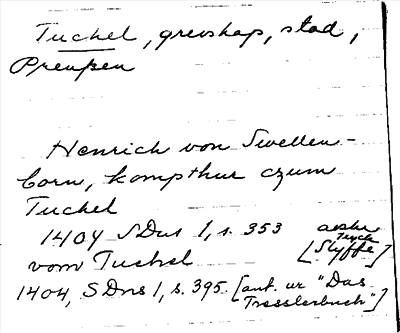 Tuchel, grevskap, stad,
Preußen
Henrich von Swellen-
born, kompthur czum
Tuchel
1404 SDns 1, s. 353
[Slyffe]
vom Tuchel
1404, SDns 1, s. 395. [ant. ur "Das
Tresslerbuch"]